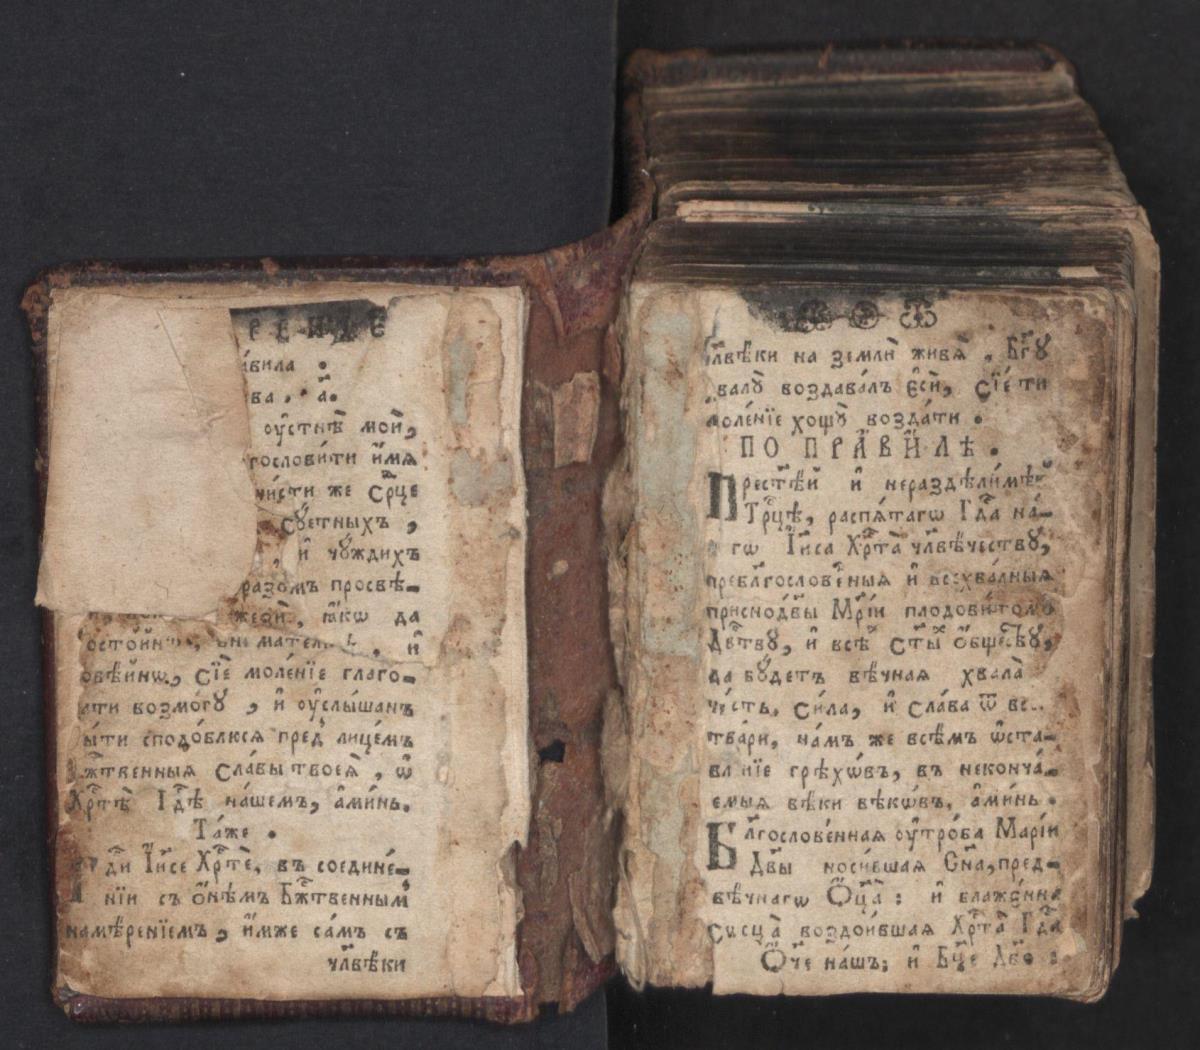 РЕНЇЕ
вила :
ва , а҃.
оу҆стнѣ̀ мои̑,
гословити и҆́мѧ
чи́сти же Ср҃це
Сꙋ́етныхъ ,
и҆ чꙋ́ждихъ
разомъ просвѣ-
жеѡ́й, ꙗ҆́кѡ да
остойн и҆
ѡвѣ́йнѡ, Сїѐ моле́нїе глаго-
ати возмо́гꙋ , и҆ оу҆слы́шанъ
ы́ти сподо́блюсѧ пред̾ лице́мъ
жт҃венныѧ Сла́вы твоеѧ̀ , ѡ҆
Хр҃тѣ̀ Гд҇ѣ на́шемъ, а҆ми́нь.
Та́же .
гд҇и І҆и҃се Хр҃тѐ, въ соедине́-
нїи съ ѻ҆́нѣмъ Бж҃твеннымъ
намѣ́ренїемъ , и҆́мже са́мъ съ
чл҃вѣки
чл҃вѣ́ки на землѝ живѧ̀ , Бг҃ꙋ
валꙋ̀ воздава́лъ є҆сѝ, Сїѐ ти
моле́нїе хощꙋ̀ возда́ти .
ПО ПРА́ВИЛѢ .
Прест҃ѣ́й и҆ нераздѣли́мѣй
Тр҃цѣ, распѧ́тагѡ Гд҇а на́-
гѡ І҆и҃са Хр҃та̀ чл҃вѣ́чествꙋ,
пребл҃гослове́ныѧ и҆ всехва́лныѧ
приснодв҃ы Мр҃і́и плодови́томꙋ
Дв҃твꙋ, и҆ всѣ́ Ст҃ы́ о҆́бществꙋ,
да бꙋ́детъ вѣ́чнаѧ хвала̀
че́сть, си́ла, и҆ сла́ва ѿ вс
тва́ри, на́мъ же всѣ́мъ ѡ҆ста-
вле́нїе грѣхѡ́въ, въ неконча́-
емыѧ вѣ́ки вѣкѡ́въ, а҆ми́нь .
Бл҃гослове́ннаѧ оу҆тро́ба Марі́и
Дв҃ы носи́вшаѧ Сн҃а, пред-
вѣ́чнагѡ Ѻ҆ц҃а̀ : и҆ блаже́ннаѧ
Сѡсца̀ воздои́вшаѧ Хр҃та̀ Гд҇а
Ѻ҆́че на́шъ: и҆ Бц҃е Дв҃о :